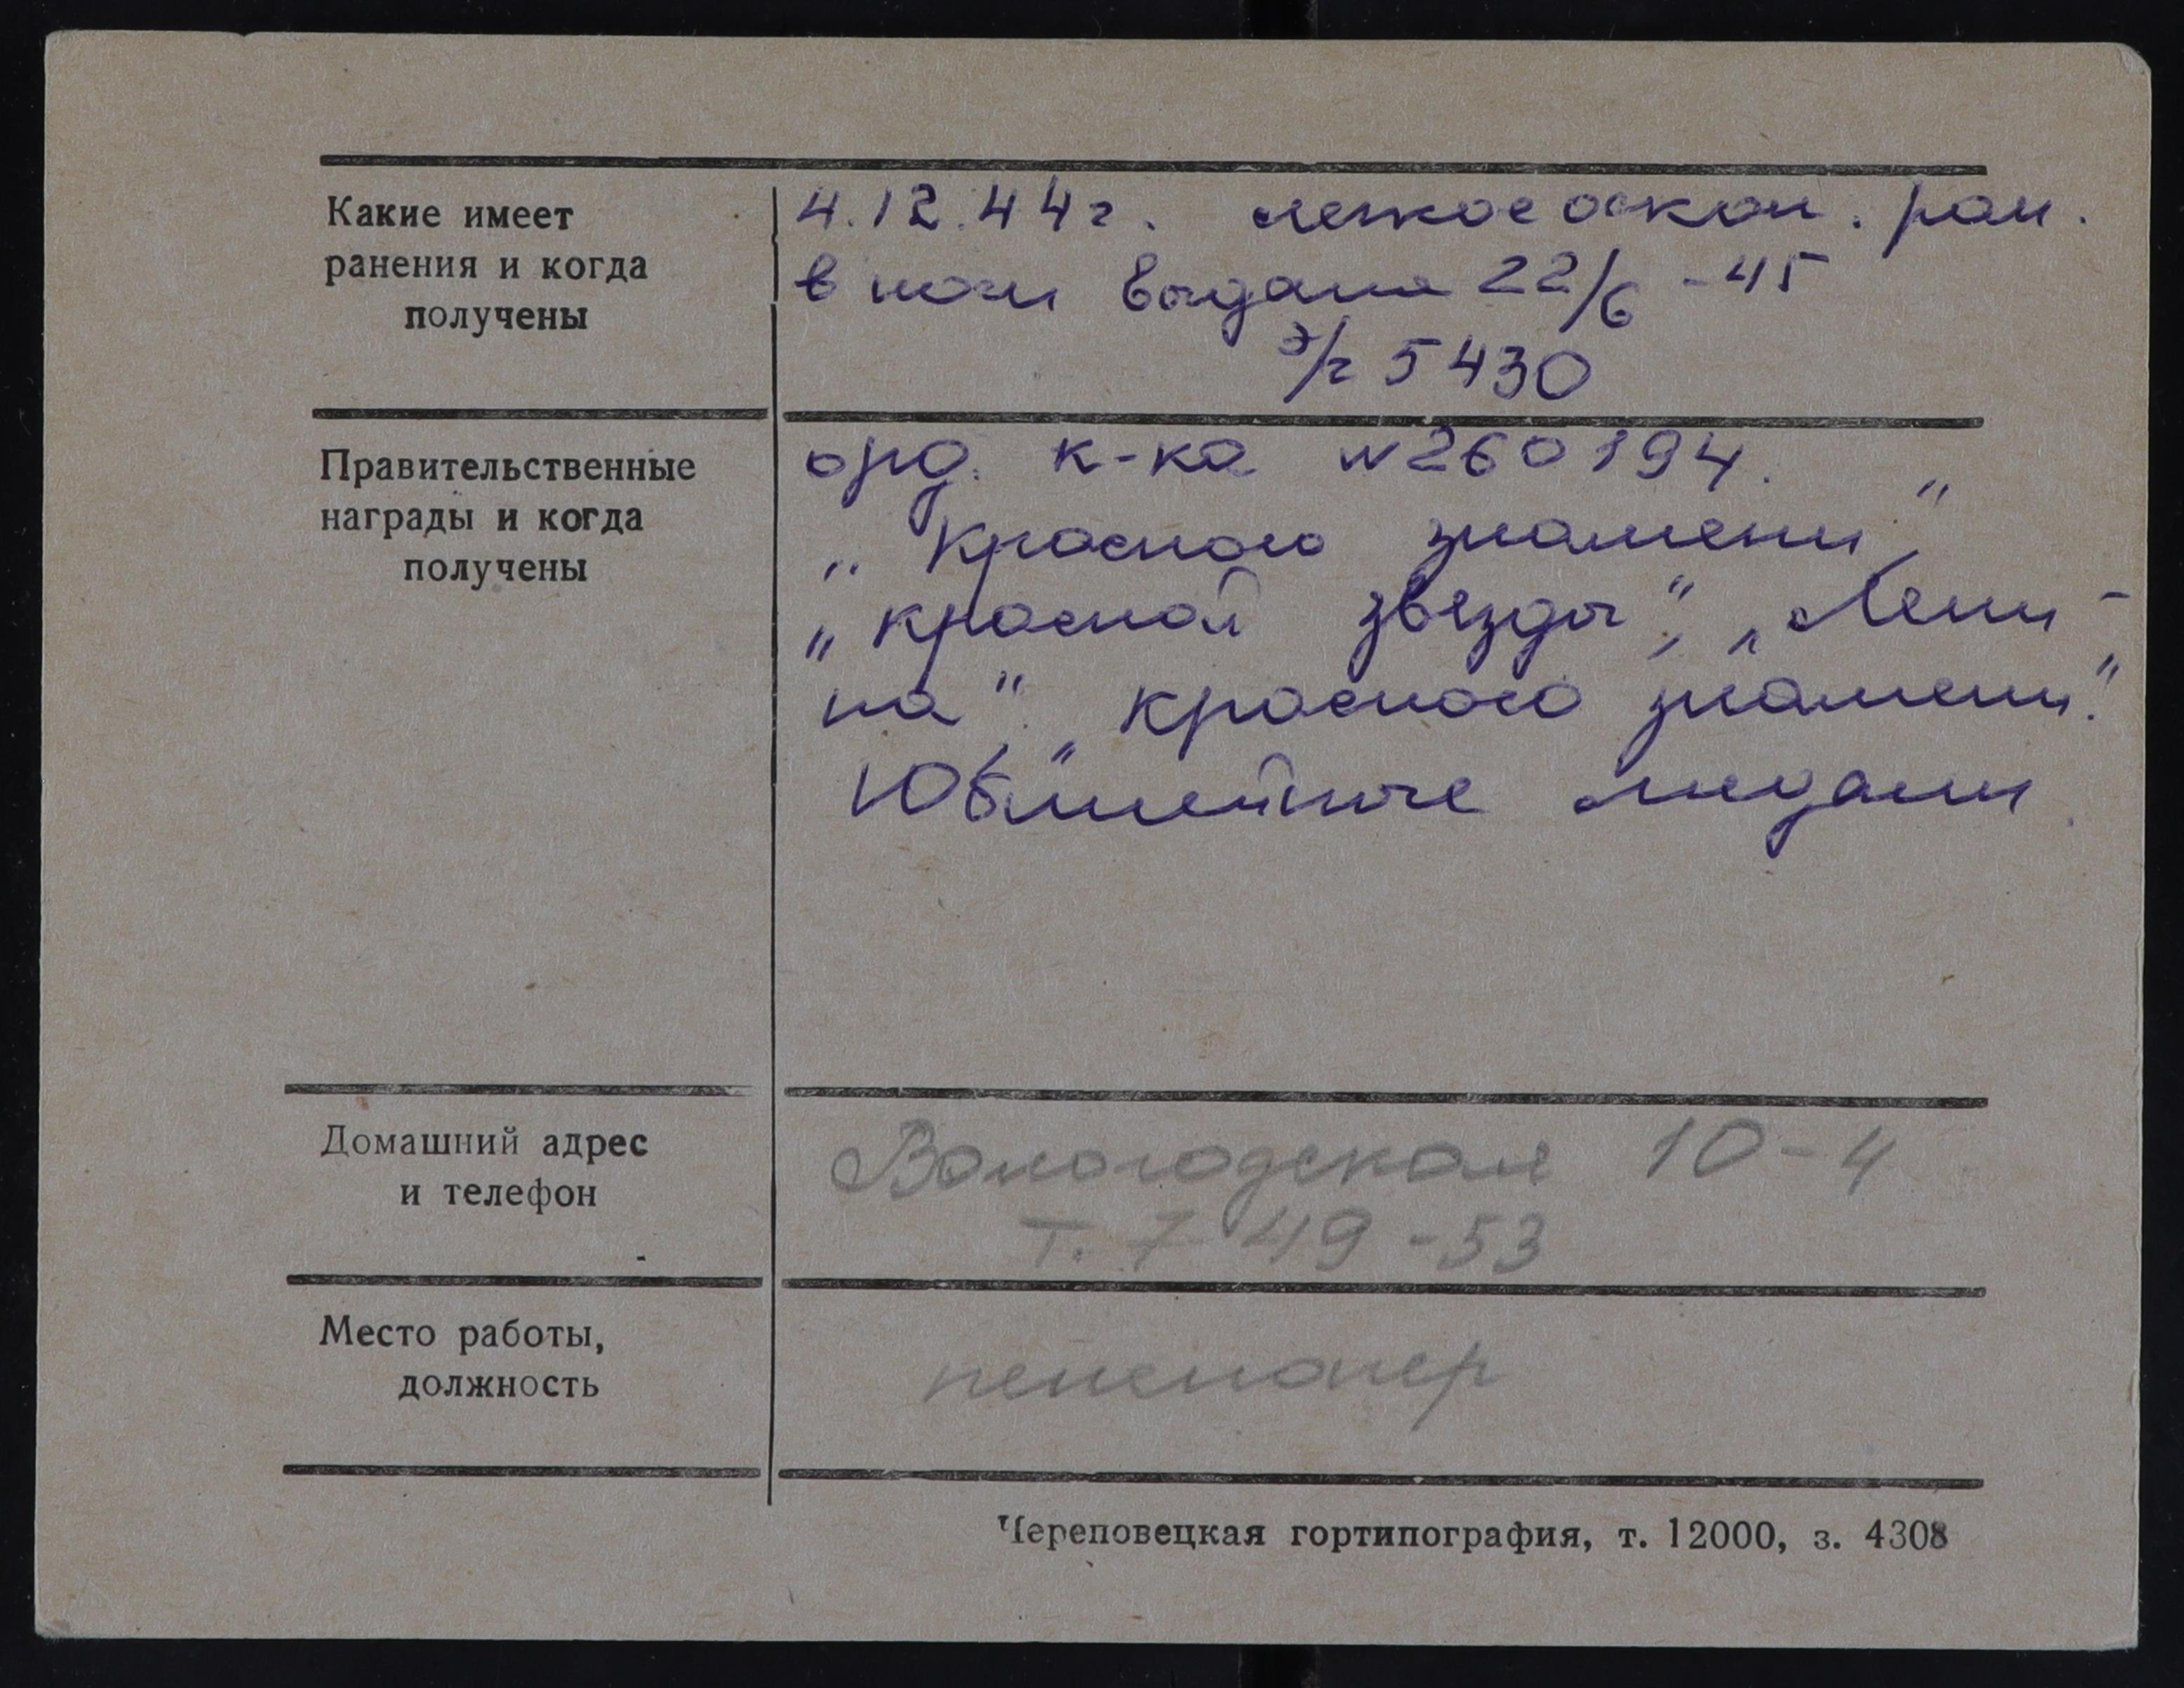 Какие имеет
ранения и когда
получены
4.12.44г. легкое оскол. ран.
в ноги выдана 22/6 -45
э/г 5430
Правительственные
награды и когда
получены
орд. к-ка №260194.
„Красного знамени",
„красной звезды", „Лени-
на", „красного знамени".
Юбилейные медали
Домашний адрес
и телефон
Вологодская 10-4
т. 7-49-53
Место работы,
должность
пенсионер
Череповецкая гортипография, т. 12000, з. 4308